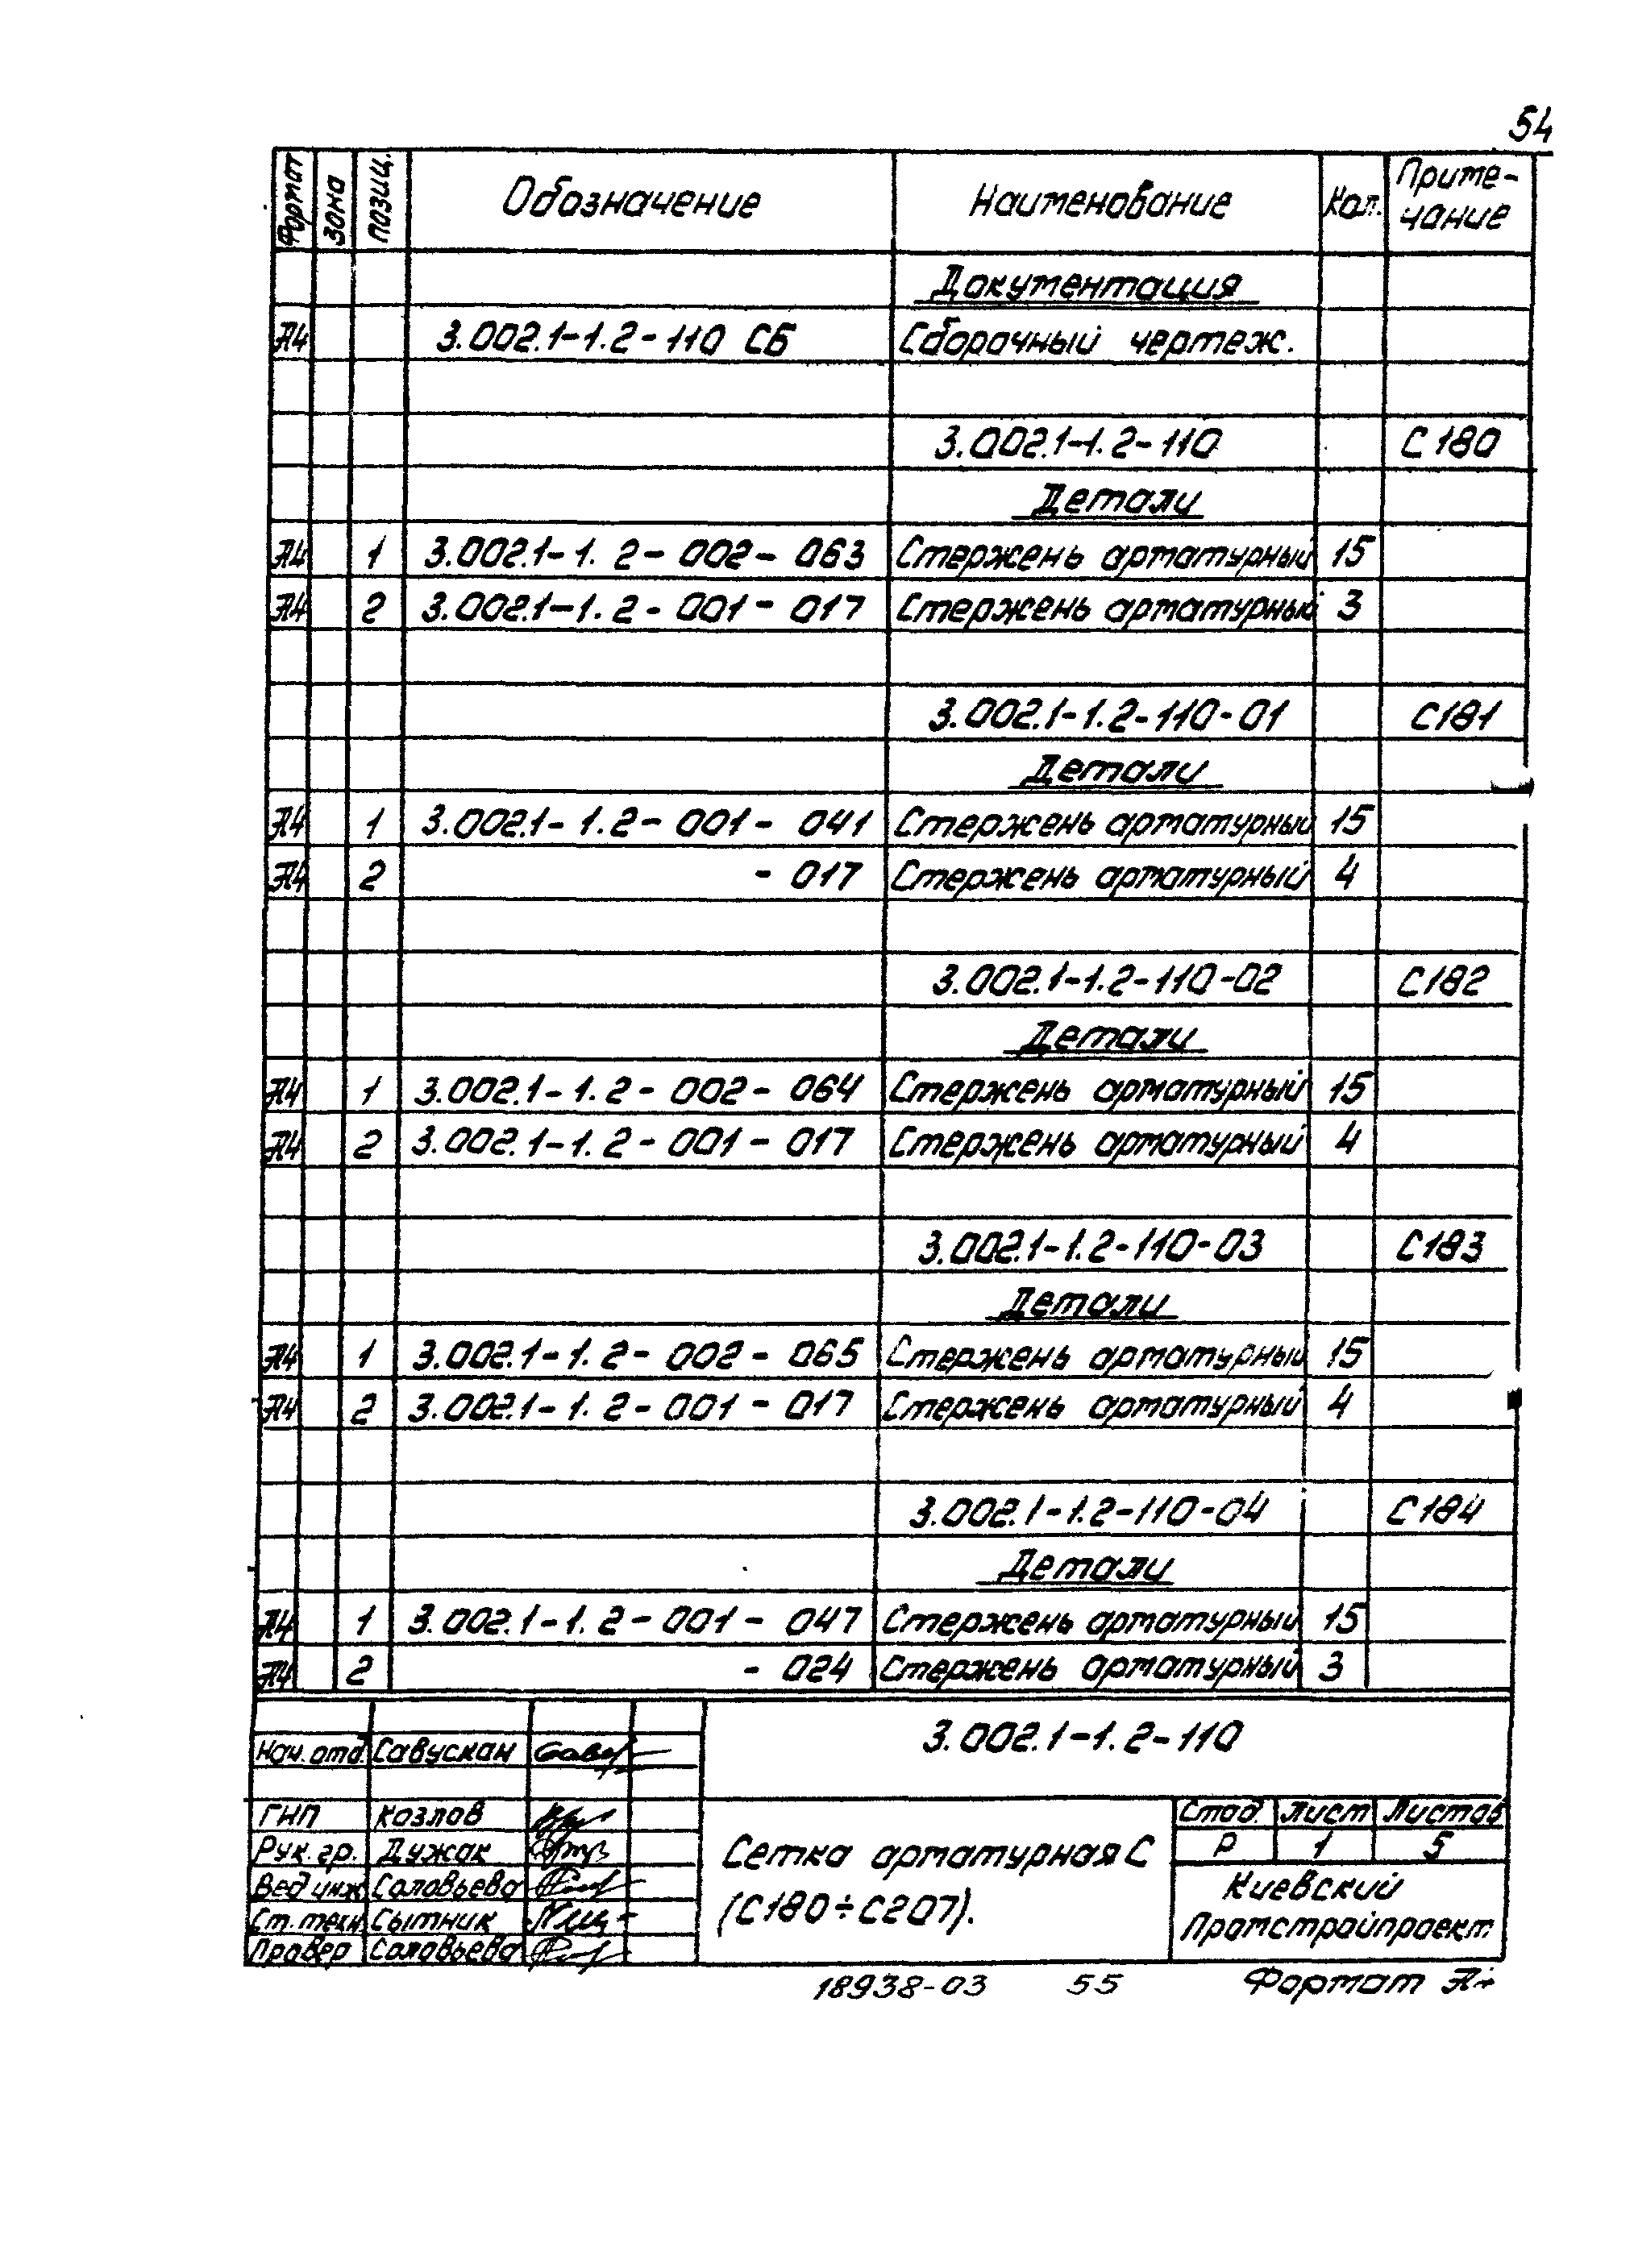 54
Формат Зона Позиц. Обозначение Наименование Кол. Приме-
чание
Документация
А4 3.002.1-1.2-110 СБ Сборочный чертеж.
3.002.1-1.2-110 С180
Детали
А4 1 3.002.1-1.2-002-063 Стержень арматурный 15
А4 2 3.002.1-1.2-001-017 Стержень арматурный 3
3.002.1-1.2-110-01 С181
Детали
А4 1 3.002.1-1.2-001-041 Стержень арматурный 15
А4 2 -017 Стержень арматурный 4
3.002.1-1.2-110-02 С182
Детали
А4 1 3.002.1-1.2-002-064 Стержень арматурный 15
А4 2 3.002.1-1.2-001-017 Стержень арматурный 4
3.002.1-1.2-110-03 С183
Детали
А4 1 3.002.1-1.2-002-065 Стержень арматурный 15
А4 2 3.002.1-1.2-001-017 Стержень арматурный 4
3.002.1-1.2-110-04 С184
Детали
А4 1 3.002.1-1.2-001-047 Стержень арматурный 15
А4 2 -024 Стержень арматурный 3
3.002.1-1.2-110
Нач. отд. Савускан
ГНП Козлов
Рук. гр. Дужак
Вед инж Соловьева
Ст. техн Сытник
Провер Соловьева
Сетка арматурная С
(С180÷С207).
Стад. Лист Листов
Р 1 5
Киевский
Промстройпроект
18938-03 55 Формат А4